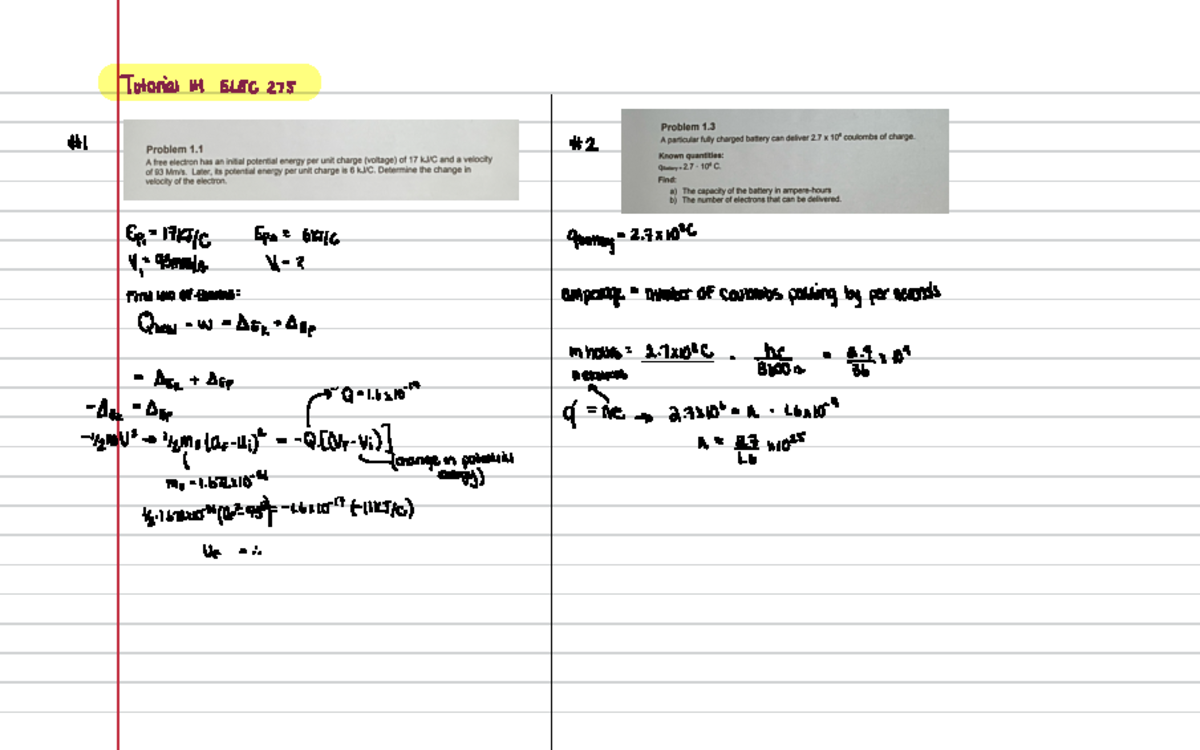 Tutorial #1 ELEC 275
#1
Problem 1.1
A free electron has an initial potential energy per unit charge (voltage) of 17 kJ/C and a velocity
of 93 Mm/s. Later, its potential energy per unit charge is 6 kJ/C. Determine the change in
velocity of the electron.
Ep₁ = 17KJ/C Ep₂ = 6KJ/C
V₁ = 93mm/s V₂ = ?
First law of
Q - w = ΔEk + ΔEp
= ΔEk + ΔEp
-ΔEk = ΔEp
Q = 1.6 x 10⁻¹⁹
= -Q[(Vf - Vi)]
(change in potential
energy)
Uf = ∴
#2
Problem 1.3
A particular fully charged battery can deliver 2.7 x 10⁶ coulombs of charge.
Known quantities:
q battery = 2.7 · 10⁶ C.
Find:
a) The capacity of the battery in ampere-hours
b) The number of electrons that can be delivered.
q battery = 2.7 x 10⁶ C
amperage = number of coulombs passing by per seconds
in hours = 2.7x10⁶ C · hr / 3600 s =
q = ne → 2.7x10⁶ = n · 1.6x10⁻¹⁹
n = 2.7 / 1.6 x10²⁵